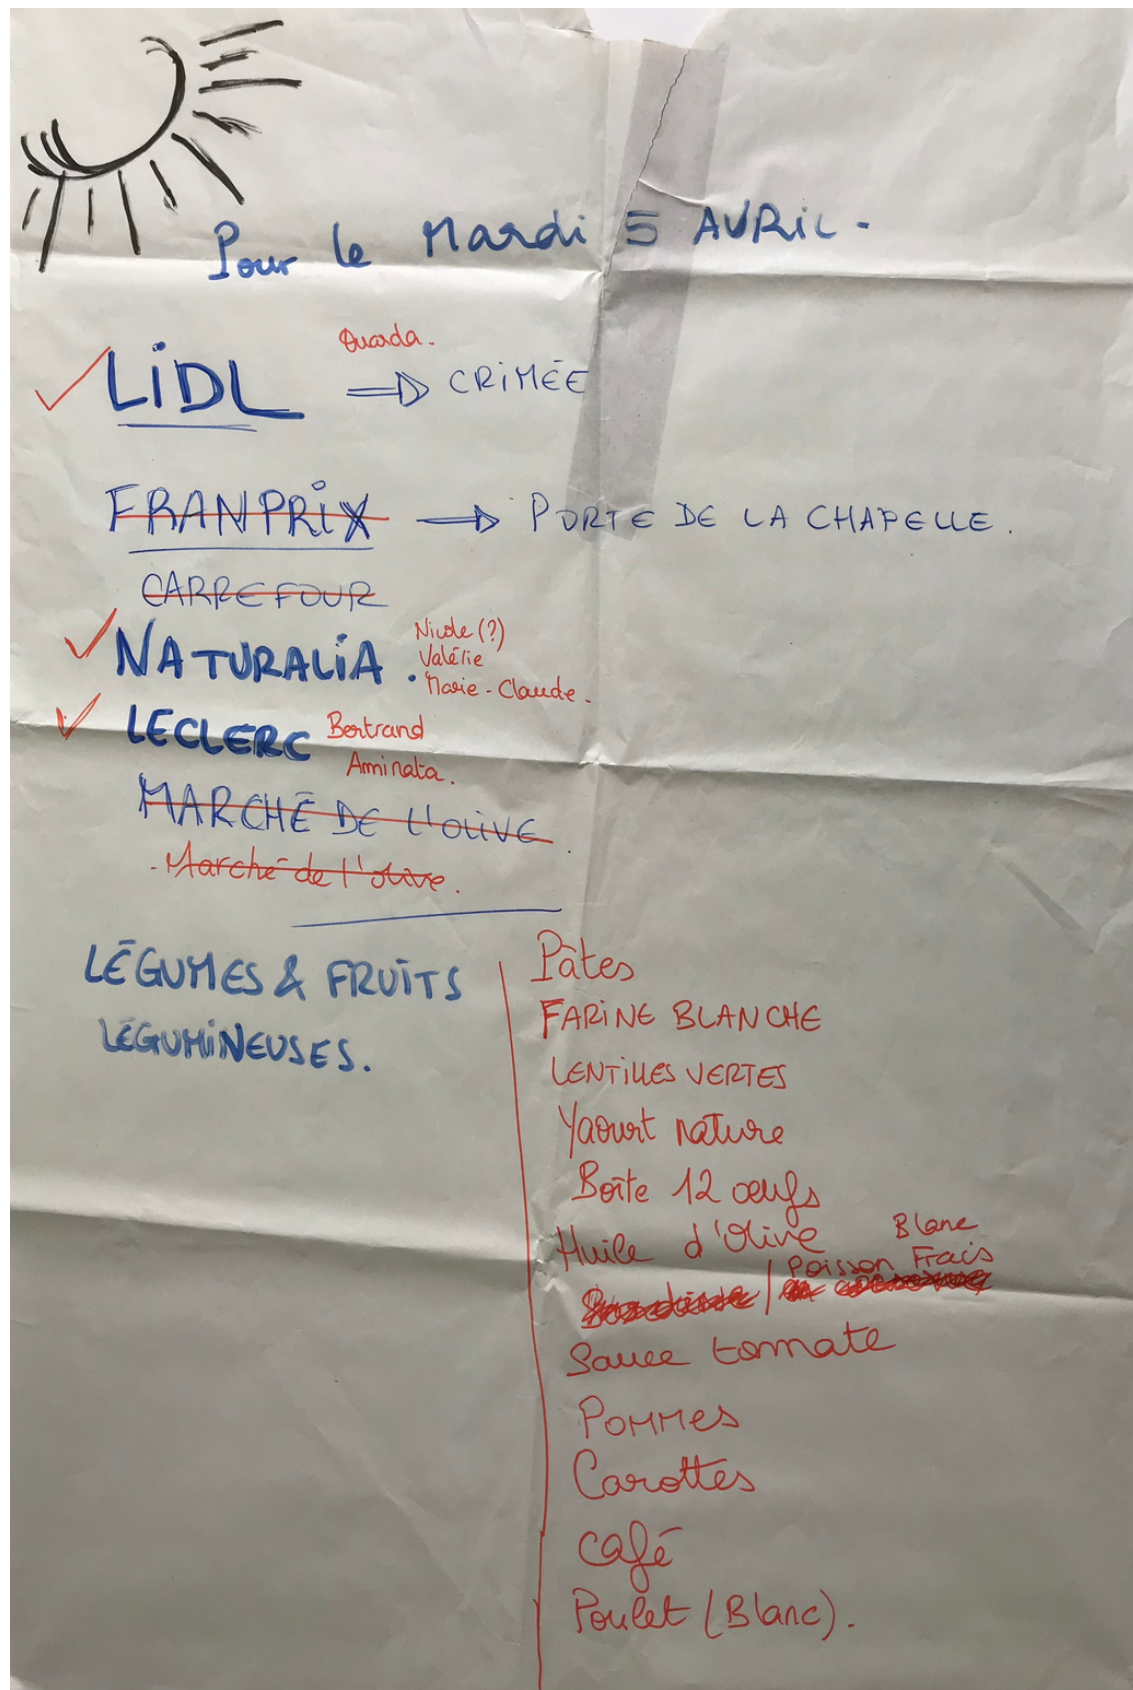 Pour le Mardi 5 AVRiL-
Ouarda.
LiDL ⇒ CRiMÉE
FRANPRiX → PORTE DE LA CHAPELLE.
CARREFOUR
NATURALiA.
Nicole (?)
Valérie
Marie-Claude.
LECLERC
Bertrand
Aminata.
MARCHÉ DE L'OLiVE.
- Marché de l'olive.
LÉGUMES & FRUiTS
LÉGUMiNEUSES.
Pâtes
FARiNE BLANCHE
LENTiLLES VERTES
Yaourt nature
Boîte 12 œufs
Huile d'Olive
Blanc
/ Poisson Frais
Sauce tomate
POMMES
Carottes
Café
Poulet (Blanc).